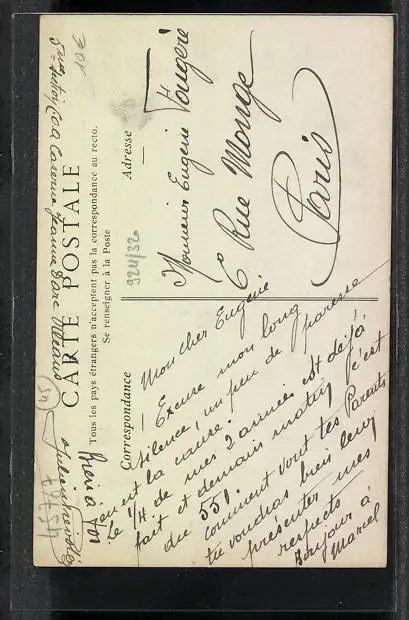 CARTE POSTALE
Tous les pays étrangers n'acceptent pas la correspondance au recto.
Se renseigner à la Poste
Correspondance
Adresse
Mon cher Eugène
Excuse mon long
silence, un peu de paresse
en est la cause.
Le 1/4 de mes 2 années est déjà
fait et demain matin c'est
du 551.
comment vont tes Parents
tu voudras bien leur
présenter mes
respects
Bonjour à
Marcel
Bien à toi
Monsieur Eugène Fougère
6 Rue Monge
Paris
Caserne Jeanne d'Arc
924/32
301